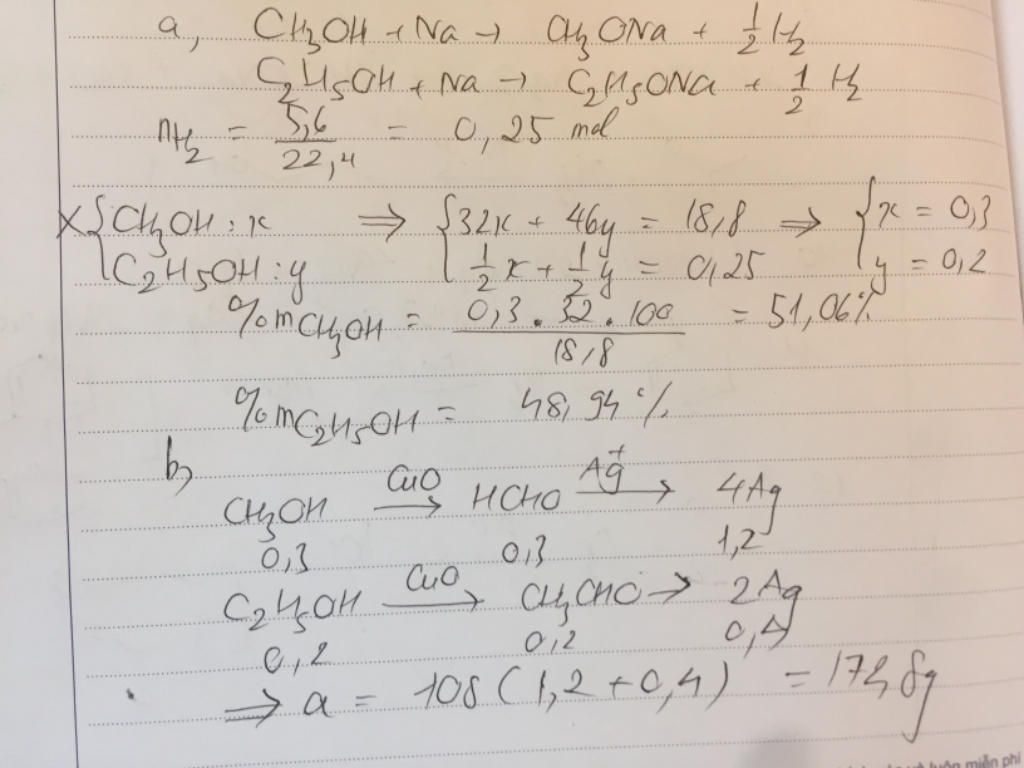 a, CH3OH + Na → CH3ONa + 1/2 H2
C2H5OH + Na → C2H5ONa + 1/2 H2
nH2 = 5,6/22,4 = 0,25 mol
X { CH3OH : x ⇒ { 32x + 46y = 18,8 ⇒ { x = 0,3
C2H5OH : y 1/2 x + 1/2 y = 0,25 y = 0,2
%mCH3OH = 0,3 . 32 . 100 / 18,8 = 51,06%
%mC2H5OH = 48,94%
b,
CH3OH CuO→ HCHO Ag+→ 4Ag
0,3 0,3 1,2
C2H5OH CuO→ CH3CHO → 2Ag
0,2 0,2 0,4
⇒ a = 108(1,2 + 0,4) = 174,8g
luôn miễn phí